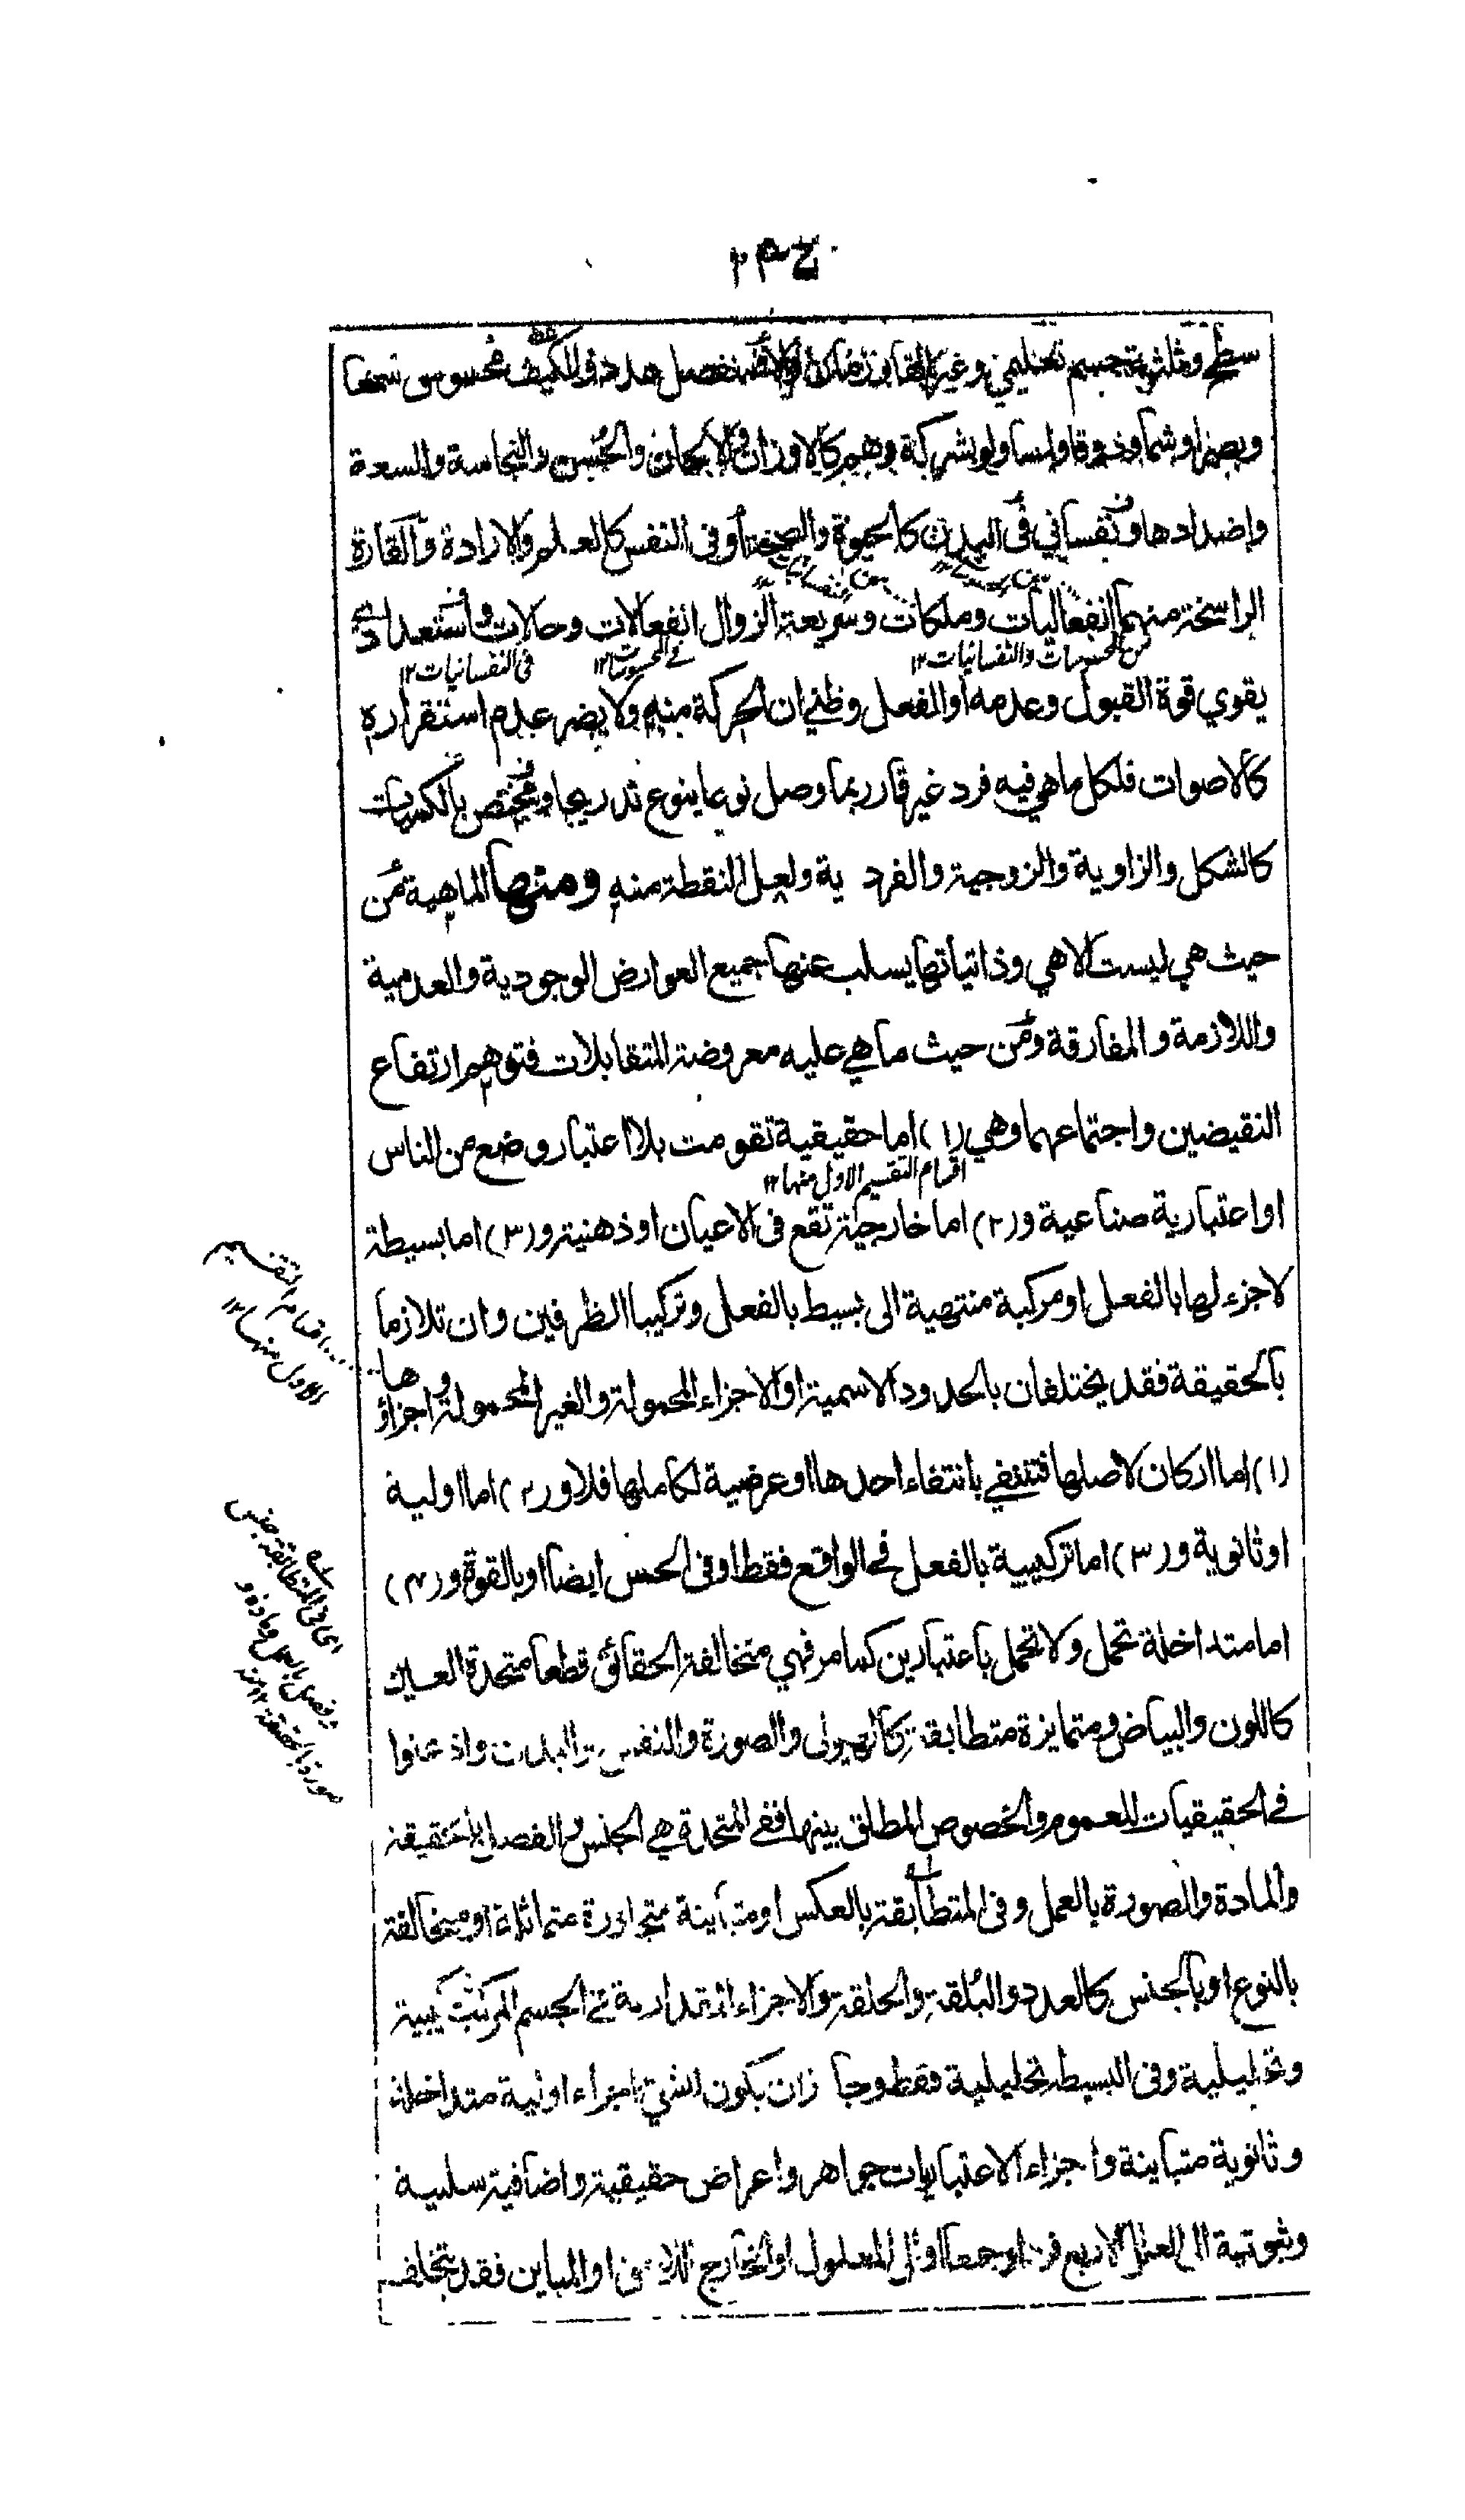 سطح وثلثية جسم تعليمي وغير القار زمان والمنفصل عدد والكيف محسوس سمعا
وبصرا وشما وذوقا ولمسا ولو بشركة وهم كالاوزان والالحان والحسن والنحاسة والسعدة
واضدادها ونفساني في البدن كالحيوة والصحة او في النفس كالعلم والارادة والقدرة
الراسخة منهما انفعاليات وملكات وسريعة الزوال انفعالات وحالات واستعدادي
من المحسوسات والنفسانيات ١٢
في المحسوسات ١٢
في النفسانيات ١٢
يقوي قوة القبول وعدمه او الفعل وظني ان الحركة منه ولا يضر عدم استقراره
كالاصوات فلكل ما هي فيه فرد غير قار ربما وصل نوعا بنوع تدريجا ومختص بالكميات
كالشكل والزاوية والزوجية والفردية ولعل النقطة منه ومنها الماهية من
حيث هي ليست الا هي وذاتياتها يسلب عنها جميع العوارض الوجودية والعدمية
واللازمة والمفارقة ومن حيث ما هي عليه معروضة المتقابلات فتوهم ارتفاع
النقيضين واجتماعهما وهي (١) اما حقيقية تقومت بلا اعتبار وضع من الناس
اقسام التقسيم الاول منها ١٢
او اعتبارية صناعية و(٢) اما خارجية تقع في الاعيان او ذهنية و(٣) اما بسيطة
لا جزء لها بالفعل او مركبة منتهية الى بسيط بالفعل وتركيبا الظرفين وان تلازما
بالحقيقة فقد يختلفان بالحدود الاسمية او الاجزاء المحمولة والغير المحمولة واجزاؤها
(١) اما اركان لاصلها فتنتفي بانتفاء احدها او عرضية لكاملها فلا و(٢) اما اولية
او ثانوية و(٣) اما تركيبية بالفعل في الواقع فقط او في الحس ايضا او بالقوة و(٤)
اما متداخلة تحمل ولا تحمل باعتبارين كما مر فهي متخالفة الحقائق قطعا متحدة العين
كاللون والبياض ومتمايزة متطابقة كالهيولى والصورة والنفس والبدن واذعنوا
في الحقيقيات للعموم والخصوص المطلق بينها ففي المتحدة هي الجنس والفصل بالحقيقة
والمادة والصورة بالعمل وفي المتطابقة بالعكس او متباينة متجاورة متماثلة او متخالفة
بالنوع او بالجنس كالعدد والبلقة والخلقة والاجزاء المقدارية في الجسم المركب تركيبية
وتحليلية وفي البسيط تحليلية فقط وجاز ان يكون لشيء اجزاء اولية متداخلة
وثانوية متباينة واجزاء الاعتباريات جواهر واعراض حقيقية واضافية سلبية
وثبوتية الى العلل الاربع فردا وجمعا او الى المعلول او الخارج اللازم او المباين فقد يتخلف
اقسام التقسيم
الاول منها ١٢
اي في المتطابقة جنس
وفصل بالعمل ومادة و
صورة بالحقيقة ١٢ منه